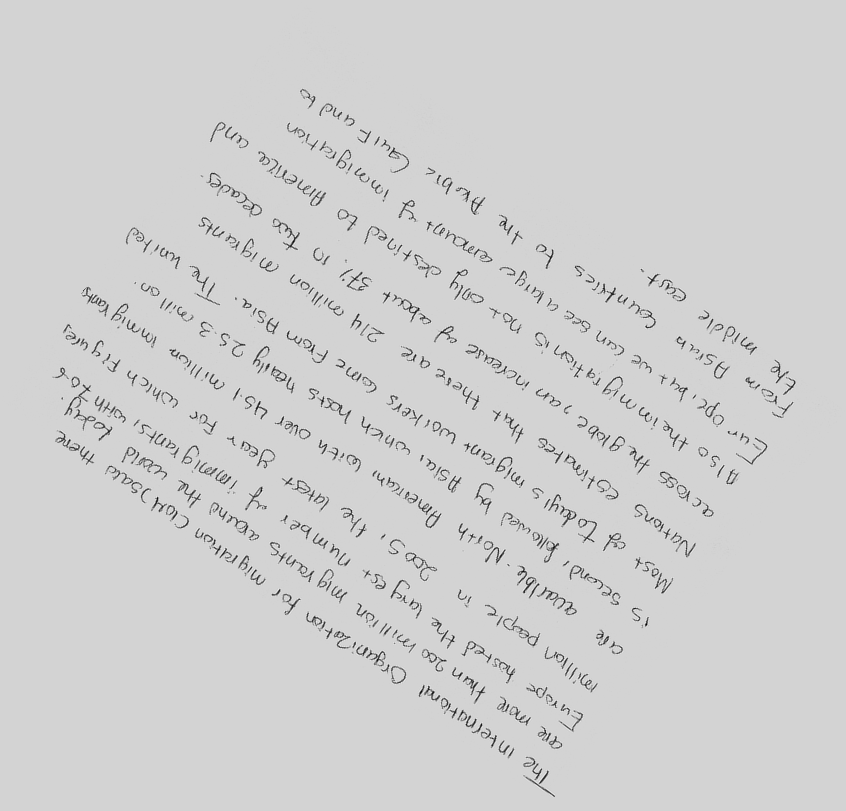 The International Organization for migration (IOM) said there
are more than 200 million migrants around the world today.
Europe hosted the largest number of immigrants, with 70.6
million people in 2005, the latest year for which figures
are avaible. North American, with over 45.1 million immigrants
is second, followed by Asia, which hosts nearly 25.3 million.
Most of today's migrant workers come from Asia. The united
Nations estimates that there are 214 million migrants
across the globe, an increase of about 37% in two decades.
Also the immigration is not only destined to America and
Europe, but we can see a large emount of immigration
From Asian countries to the Arabic Gulf and to
the middle east.